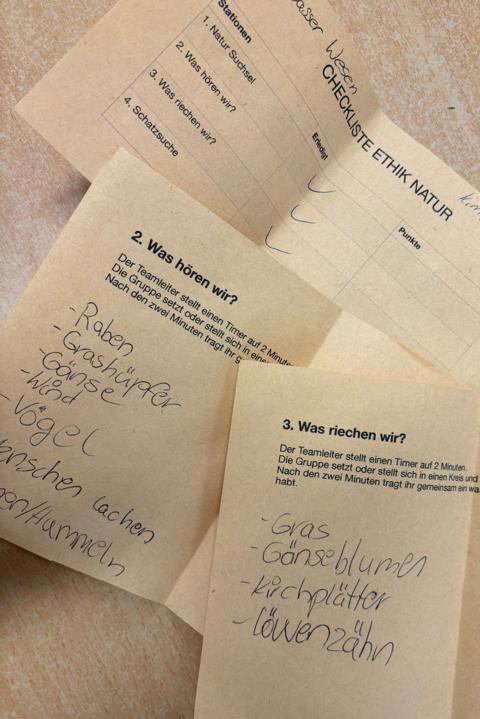 asser Wesen
CHECKLISTE ETHIK NATUR
Stationen
Erledigt
Punkte
1. Natur Suchsel
2. Was hören wir?
3. Was riechen wir?
4. Schatzsuche
2. Was hören wir?
Der Teamleiter stellt einen Timer auf 2 Minute
Die Gruppe setzt oder stellt sich in eine
Nach den zwei Minuten tragt ihr g
-Raben
-Grashüpfer
-Gänse
-Wind
-Vögel
enschen lachen
en/Hummeln
3. Was riechen wir?
Der Teamleiter stellt einen Timer auf 2 Minuten.
Die Gruppe setzt oder stellt sich in einen Kreis und
Nach den zwei Minuten tragt ihr gemeinsam ein wa
habt.
-Gras
-Gänseblumen
-Kirchplätter
-Löwenzähn